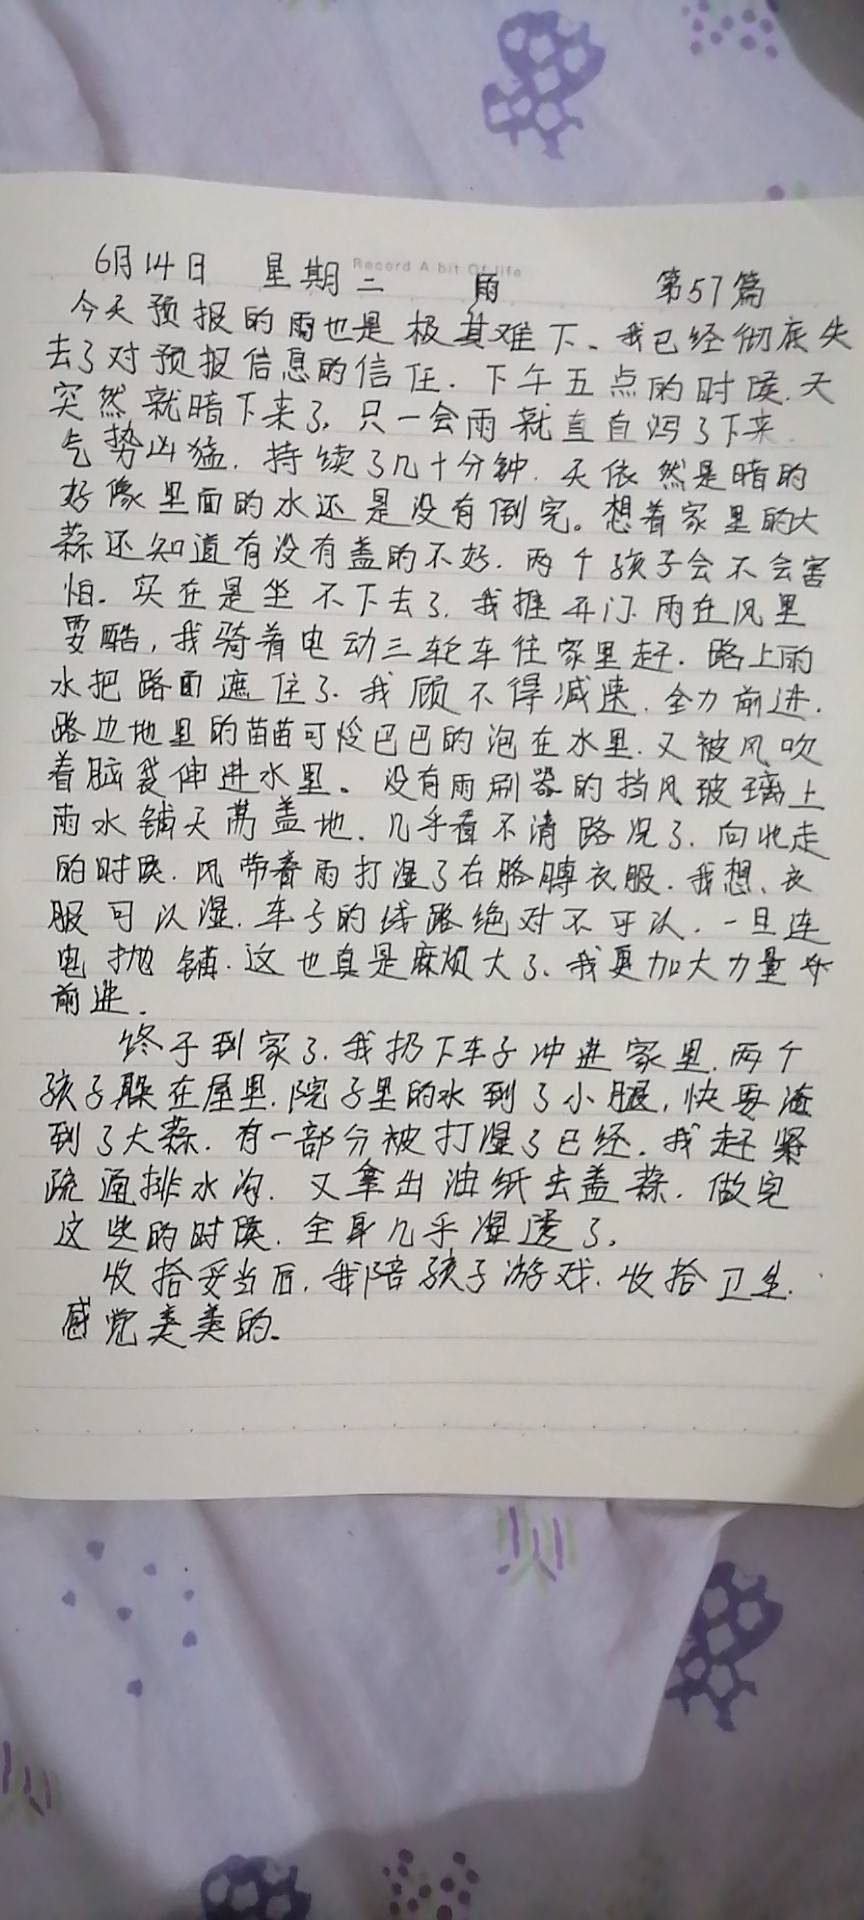 Record A bit Of life
6月14日 星期二 雨 第57篇
今天预报的雨也是极其难下、我已经彻底失
去了对预报信息的信任.下午五点的时候.天
突然就暗下来了,只一会雨就直自泻了下来.
气势凶猛.持续了几十分钟.天依然是暗的
好像里面的水还是没有倒完。想着家里的大
蒜还知道有没有盖的不好.两个孩子会不会害
怕.实在是坐不下去了.我推开门.雨在风里
耍酷,我骑着电动三轮车往家里赶.路上雨
水把路面遮住了.我顾不得减速.全力前进.
路边地里的苗苗可怜巴巴的泡在水里.又被风吹
着脑袋伸进水里。没有雨刷器的挡风玻璃上
雨水铺天 盖地.几乎看不清路况了.向北走
的时候.风带着雨打湿了右胳膊衣服.我想、衣
服可以湿.车子的线路绝对不可以.一旦连
电抛锚.这也真是麻烦大了、我更加大力量
前进.
终于到家了.我扔下车子冲进家里.两个
孩子躲在屋里.院子里的水到了小腿,快要淹
到了大蒜.有一部分被打湿了已经.我赶紧
疏通排水沟.又拿出油纸去盖蒜.做完
这些的时候.全身几乎湿透了.
收拾妥当后.我陪孩子游戏.收拾卫生.
感觉美美的.